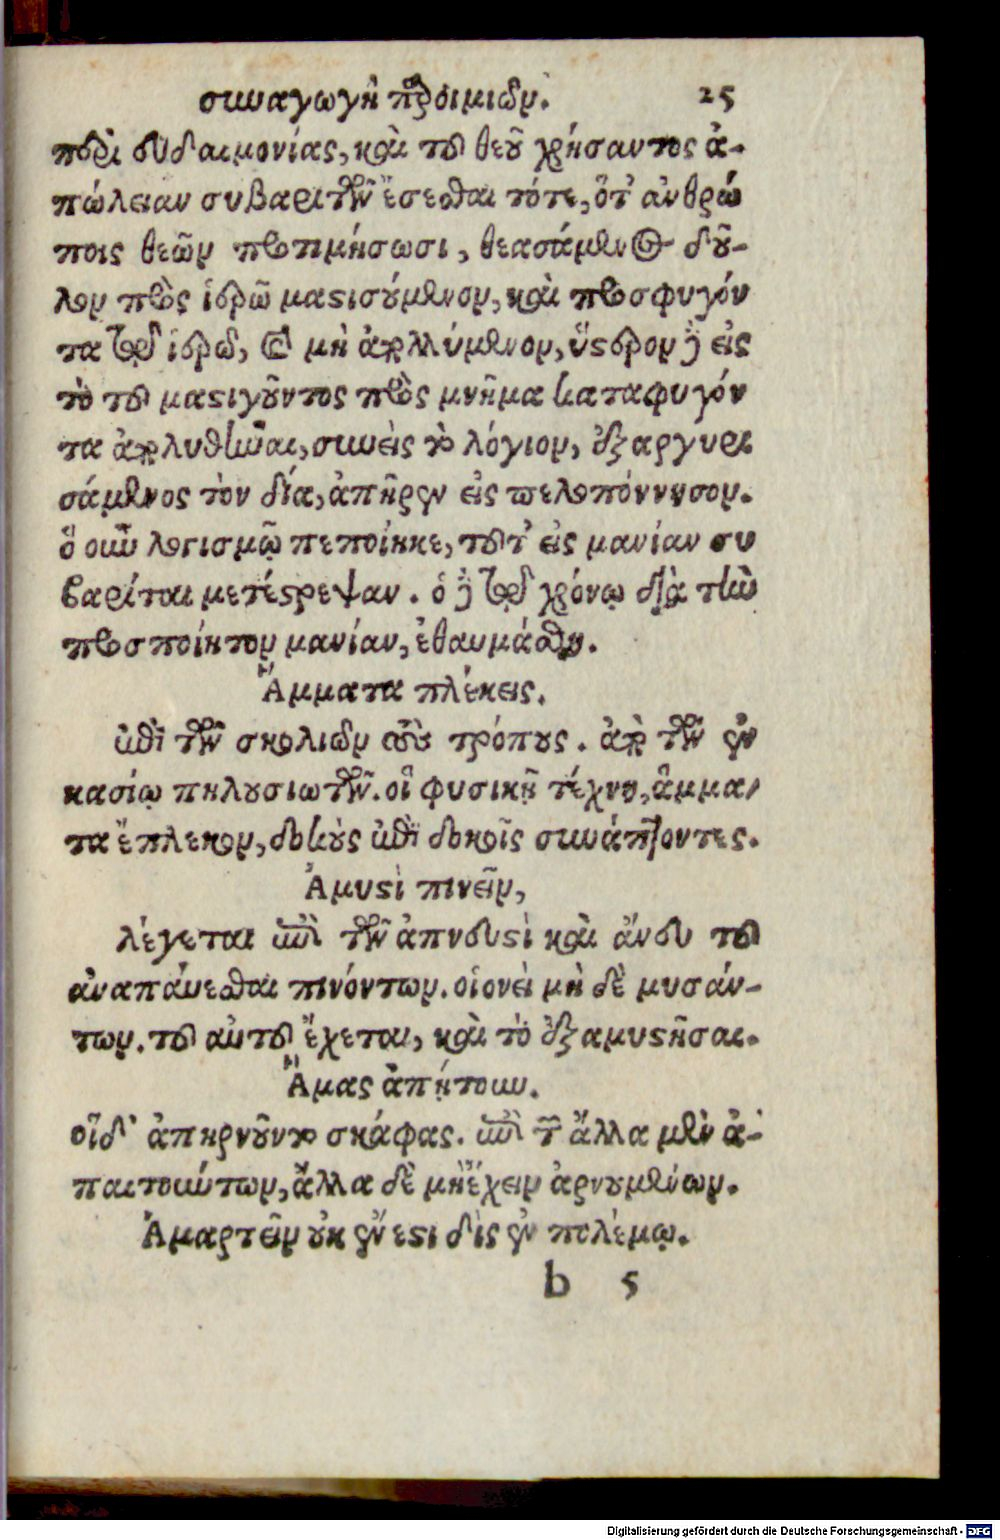 συναγωγὴ παροιμιῶν. 25
περὶ εὐδαιμονίας, καὶ τοῦ θεοῦ χρήσαντος ἀ-
πώλειαν συβαριτῶν ἔσεσθαι τότε, ὅτ' ἀνθρώ
ποις θεῶν προτιμήσωσι, θεασάμενος δοῦ-
λον πρὸς ἱερῶ μαστιγούμενον, καὶ προσφυγόν
τα τῷ ἱερῷ, καὶ μὴ ἀπολλύμενον, ὕστερον δὲ εἰς
τὸ τοῦ μαστιγοῦντος πρὸς μνῆμα καταφυγόν
τα ἀπολυθῆναι, συνεὶς τὸ λόγιον, ἐξαργυρι
σάμενος τὸν βίον, ἀπῆρεν εἰς πελοπόννησον.
ὃ οὖν λογισμῷ πεποίηκε, τοῦτ' εἰς μανίαν συ
βαρίται μετέστρεψαν. ὁ δὲ τῷ χρόνῳ διὰ τὴν
προσποίητον μανίαν, ἐθαυμάσθη.
Ἄμματα πλέκεις.
ἐπὶ τῶν σκολιῶν τοὺς τρόπους. ἀπὸ τῶν ἐν
κασίῳ πηλουσιωτῶν. οἳ φυσικῇ τέχνῃ, ἄμμα
τα ἔπλεκον, δοκοὺς ἐπὶ δοκοῖς συνάπτοντες.
Ἀμυστὶ πινεῖν,
λέγεται ἐπὶ τῶν ἀπνευστὶ καὶ ἄνευ τοῦ
ἀναπαύεσθαι πινόντων. οἱονεὶ μὴ δὲ μυσάν-
των. τοῦ αὐτοῦ ἔχεται, καὶ τὸ ἐξαμυστῆσαι.
Ἄμας ἀπῄτουν.
οἳ δ' ἀπηρνοῦντο σκάφας. ἐπὶ τῶν ἄλλα μὲν ἀ-
παιτούντων, ἄλλα δὲ μὴ ἔχειν ἀρνουμένων.
Ἁμαρτεῖν οὐκ ἔνεστι δὶς ἐν πολέμῳ.
b 5
Digitalisierung gefördert durch die Deutsche Forschungsgemeinschaft - DFG